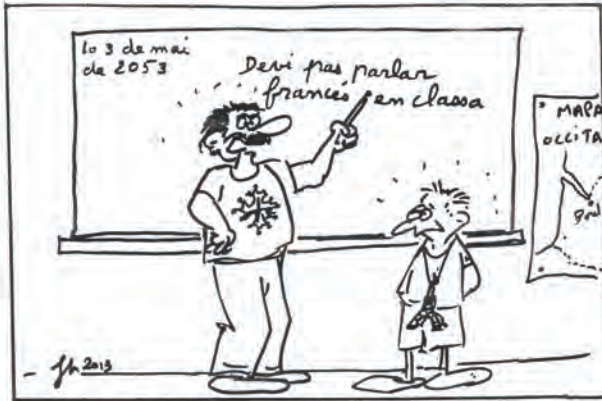 lo 3 de mai
de 2053
Devi pas parlar
francés en classa
MAPA
OCCITA
2013